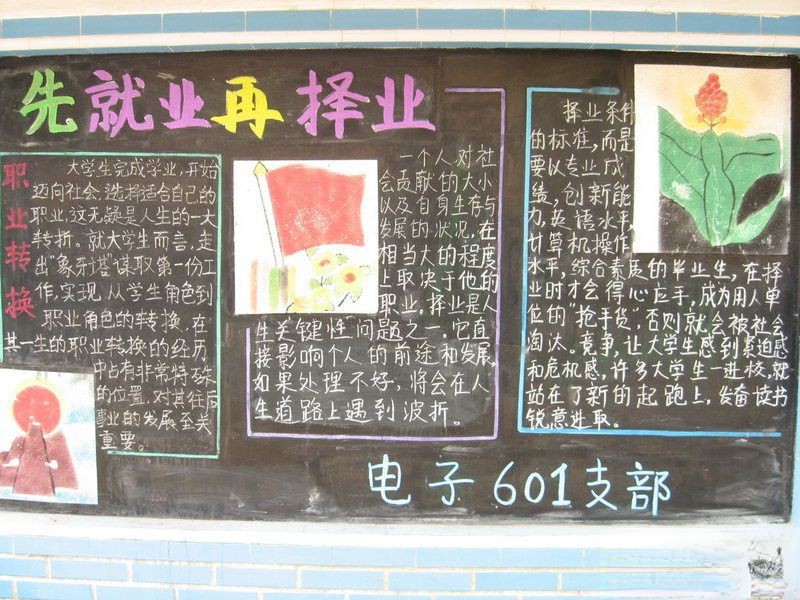 先就业再择业
职业转换
大学生完成学业，开始
迈向社会，选择适合自己的
职业，这无疑是人生的一大
转折。就大学生而言，走
出“象牙塔”谋取第一份工
作，实现从学生角色到
职业角色的转换，在
其一生的职业转换的经历
中占有非常特殊
的位置，对其往后
事业的发展至关
重要。
一个人对社
会贡献的大小
以及自身生存与
发展的状况，在
相当大的程度
上取决于他的
职业。择业是人
生关键性问题之一。它直
接影响个人的前途和发展，
如果处理不好，将会在人
生道路上遇到波折。
择业条件
的标准，而是
要以专业成
绩，创新能
力，英语水平，
计算机操作
水平，综合素质的毕业生，在择
业时才会得心应手，成为用人单
位的“抢手货”，否则就会被社会
淘汰。竞争，让大学生感到紧迫感
和危机感，许多大学生一进校，就
站在了新的起跑上，发奋读书
锐意进取。
电子601支部